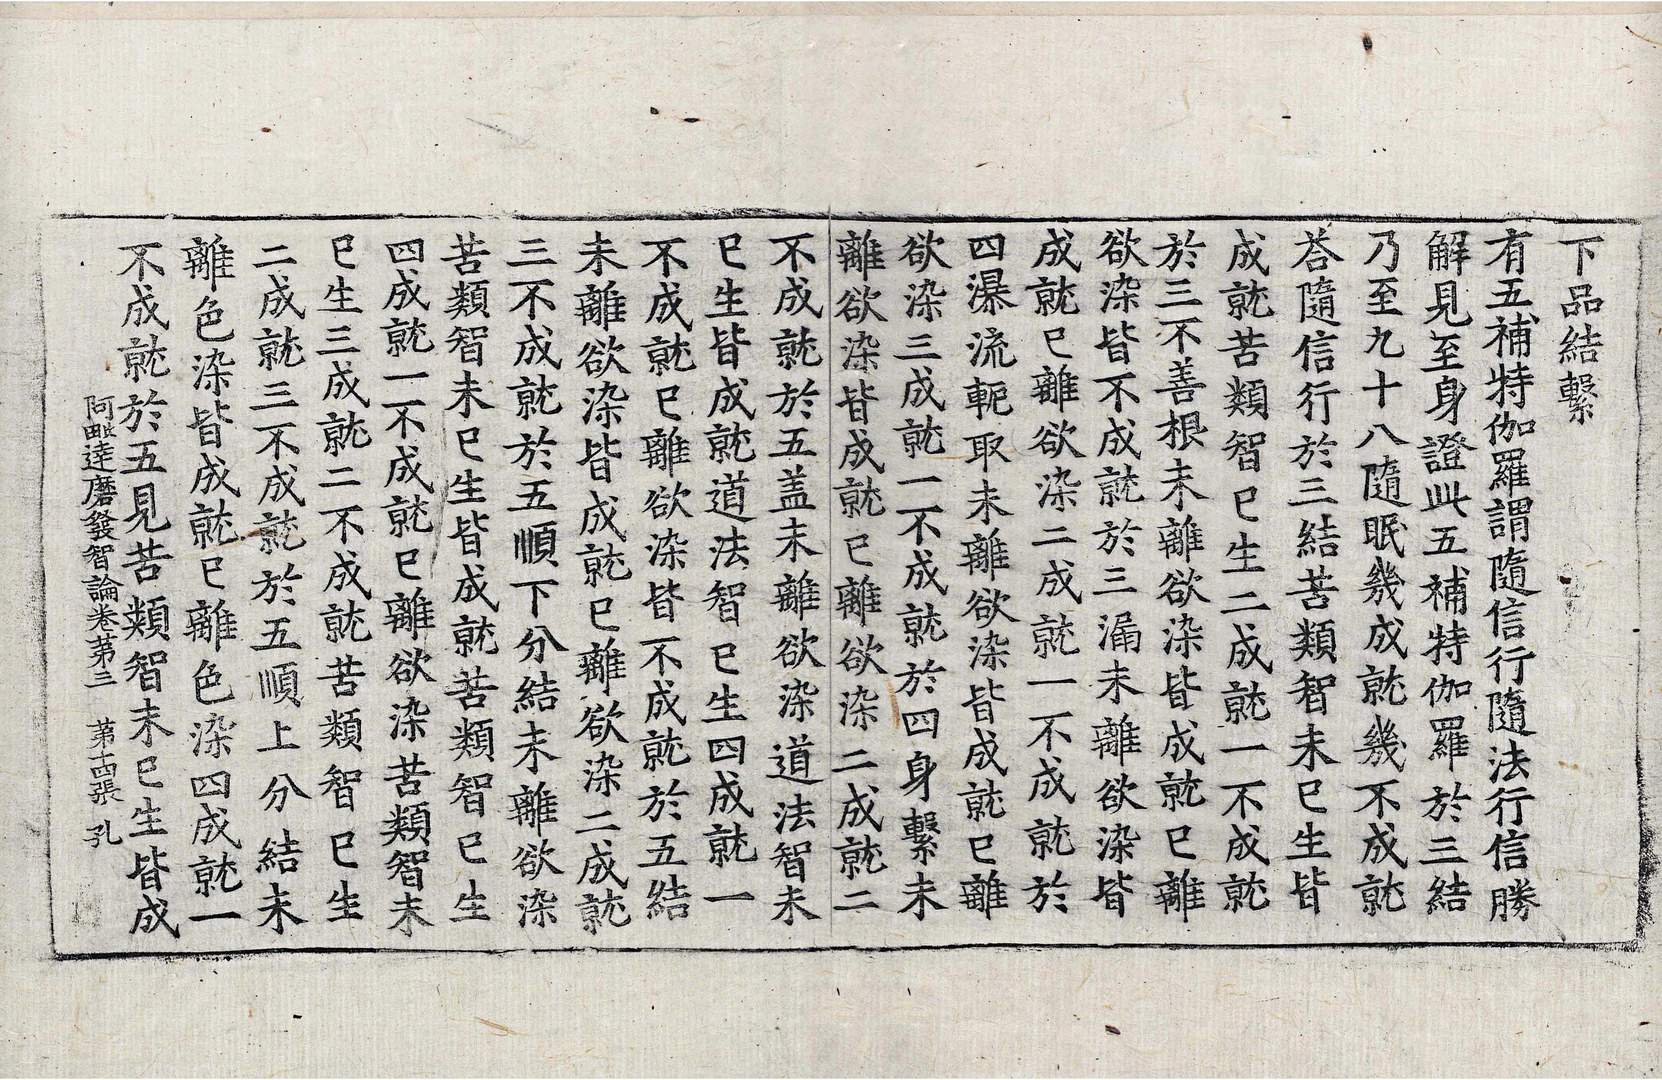 下品結繫
有五補特伽羅謂隨信行隨法行信勝
解見至身證此五補特伽羅於三結
乃至九十八隨眠幾成就幾不成就
荅隨信行於三結苦類智未已生皆
成就苦類智已生二成就一不成就
於三不善根未離欲染皆成就已離
欲染皆不成就於三漏未離欲染皆
成就已離欲染二成就一不成就於
四瀑流軛取未離欲染皆成就已離
欲染三成就一不成就於四身繫未
離欲染皆成就已離欲染二成就二
不成就於五盖未離欲染道法智未
已生皆成就道法智已生四成就一
不成就已離欲染皆不成就於五結
未離欲染皆成就已離欲染二成就
三不成就於五順下分結未離欲染
苦類智未已生皆成就苦類智已生
四成就一不成就已離欲染苦類智未
已生三成就二不成就苦類智已生
二成就三不成就於五順上分結未
離色染皆成就已離色染四成就一
不成就於五見苦類智未已生皆成
阿毗達磨發智論卷第三 第十四張 孔